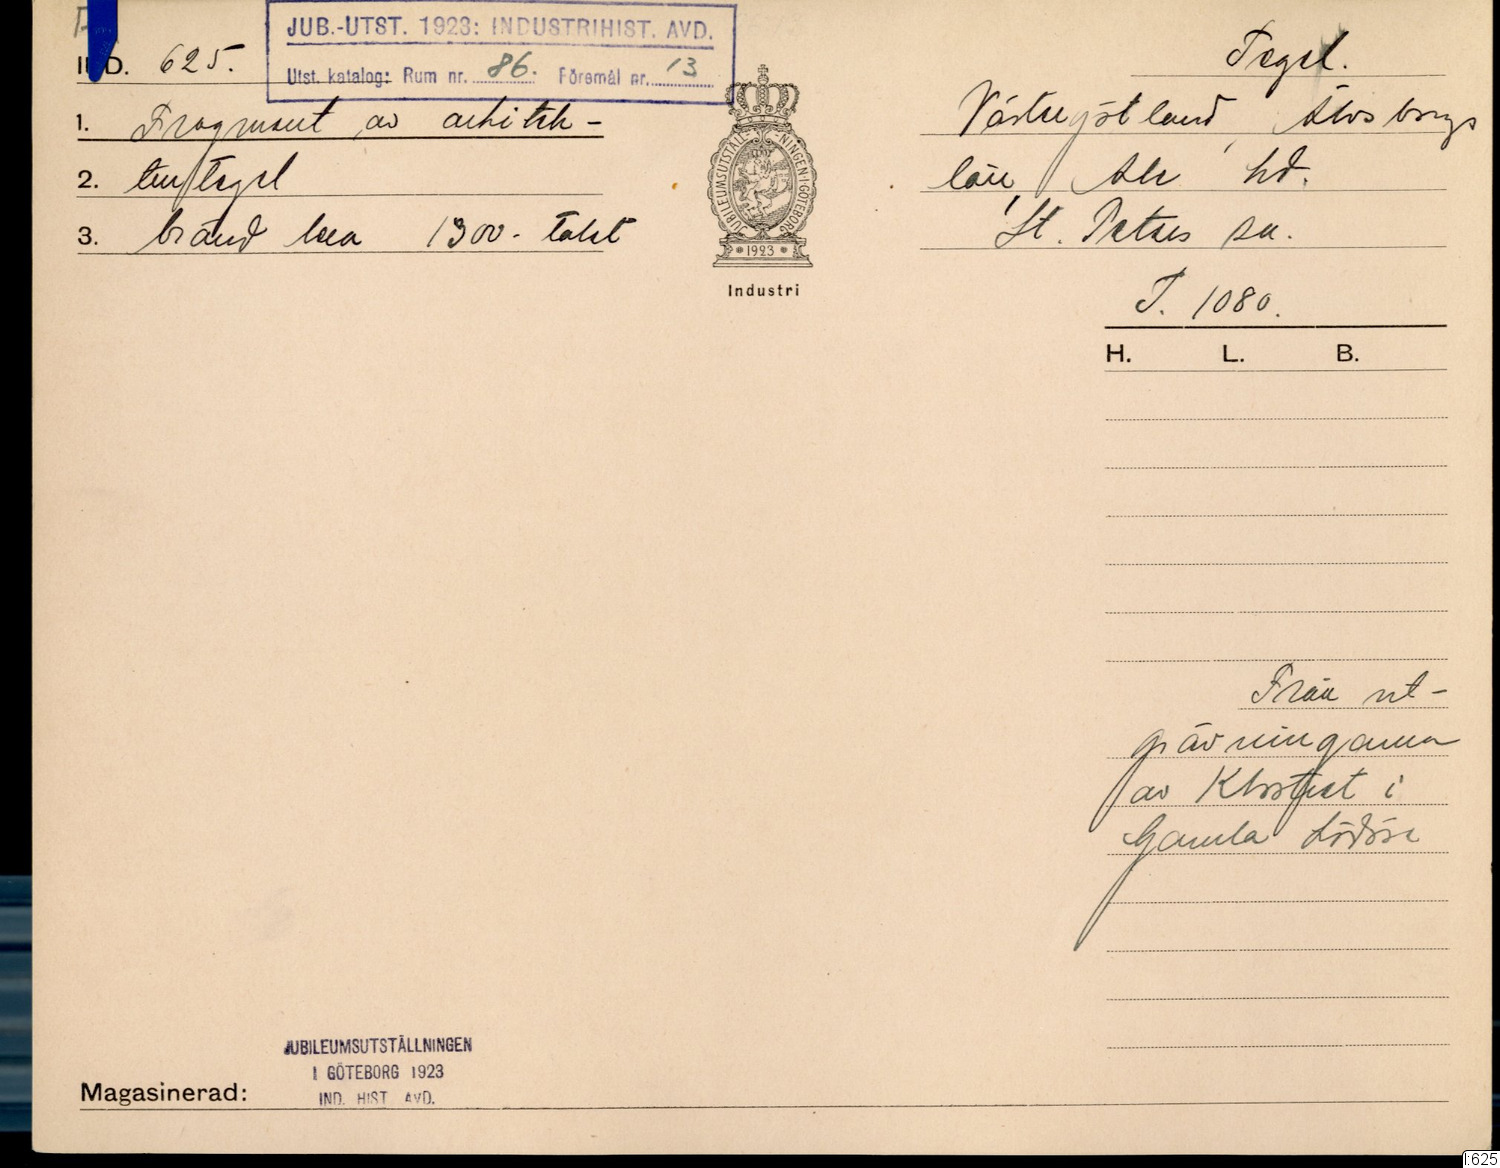 JUB.-UTST. 1923: INDUSTRIHIST. AVD.
Utst. katalog: Rum nr. 86. Föremål nr. 13
IND. 625.
Tegel.
1. Fragment av arkitek-
2. turtegel
3. bränd lera 1300-talet
Västergötland, Älvsborgs
län, Ale hd.
St. Peters sn.
JUBILEUMSUTSTÄLLNINGEN I GÖTEBORG
1923
Industri
T. 1080.
H. L. B.
Från ut-
grävningarna
av Klostret i
Gamla Lödöse
JUBILEUMSUTSTÄLLNINGEN
I GÖTEBORG 1923
IND. HIST. AVD.
Magasinerad:
I:625